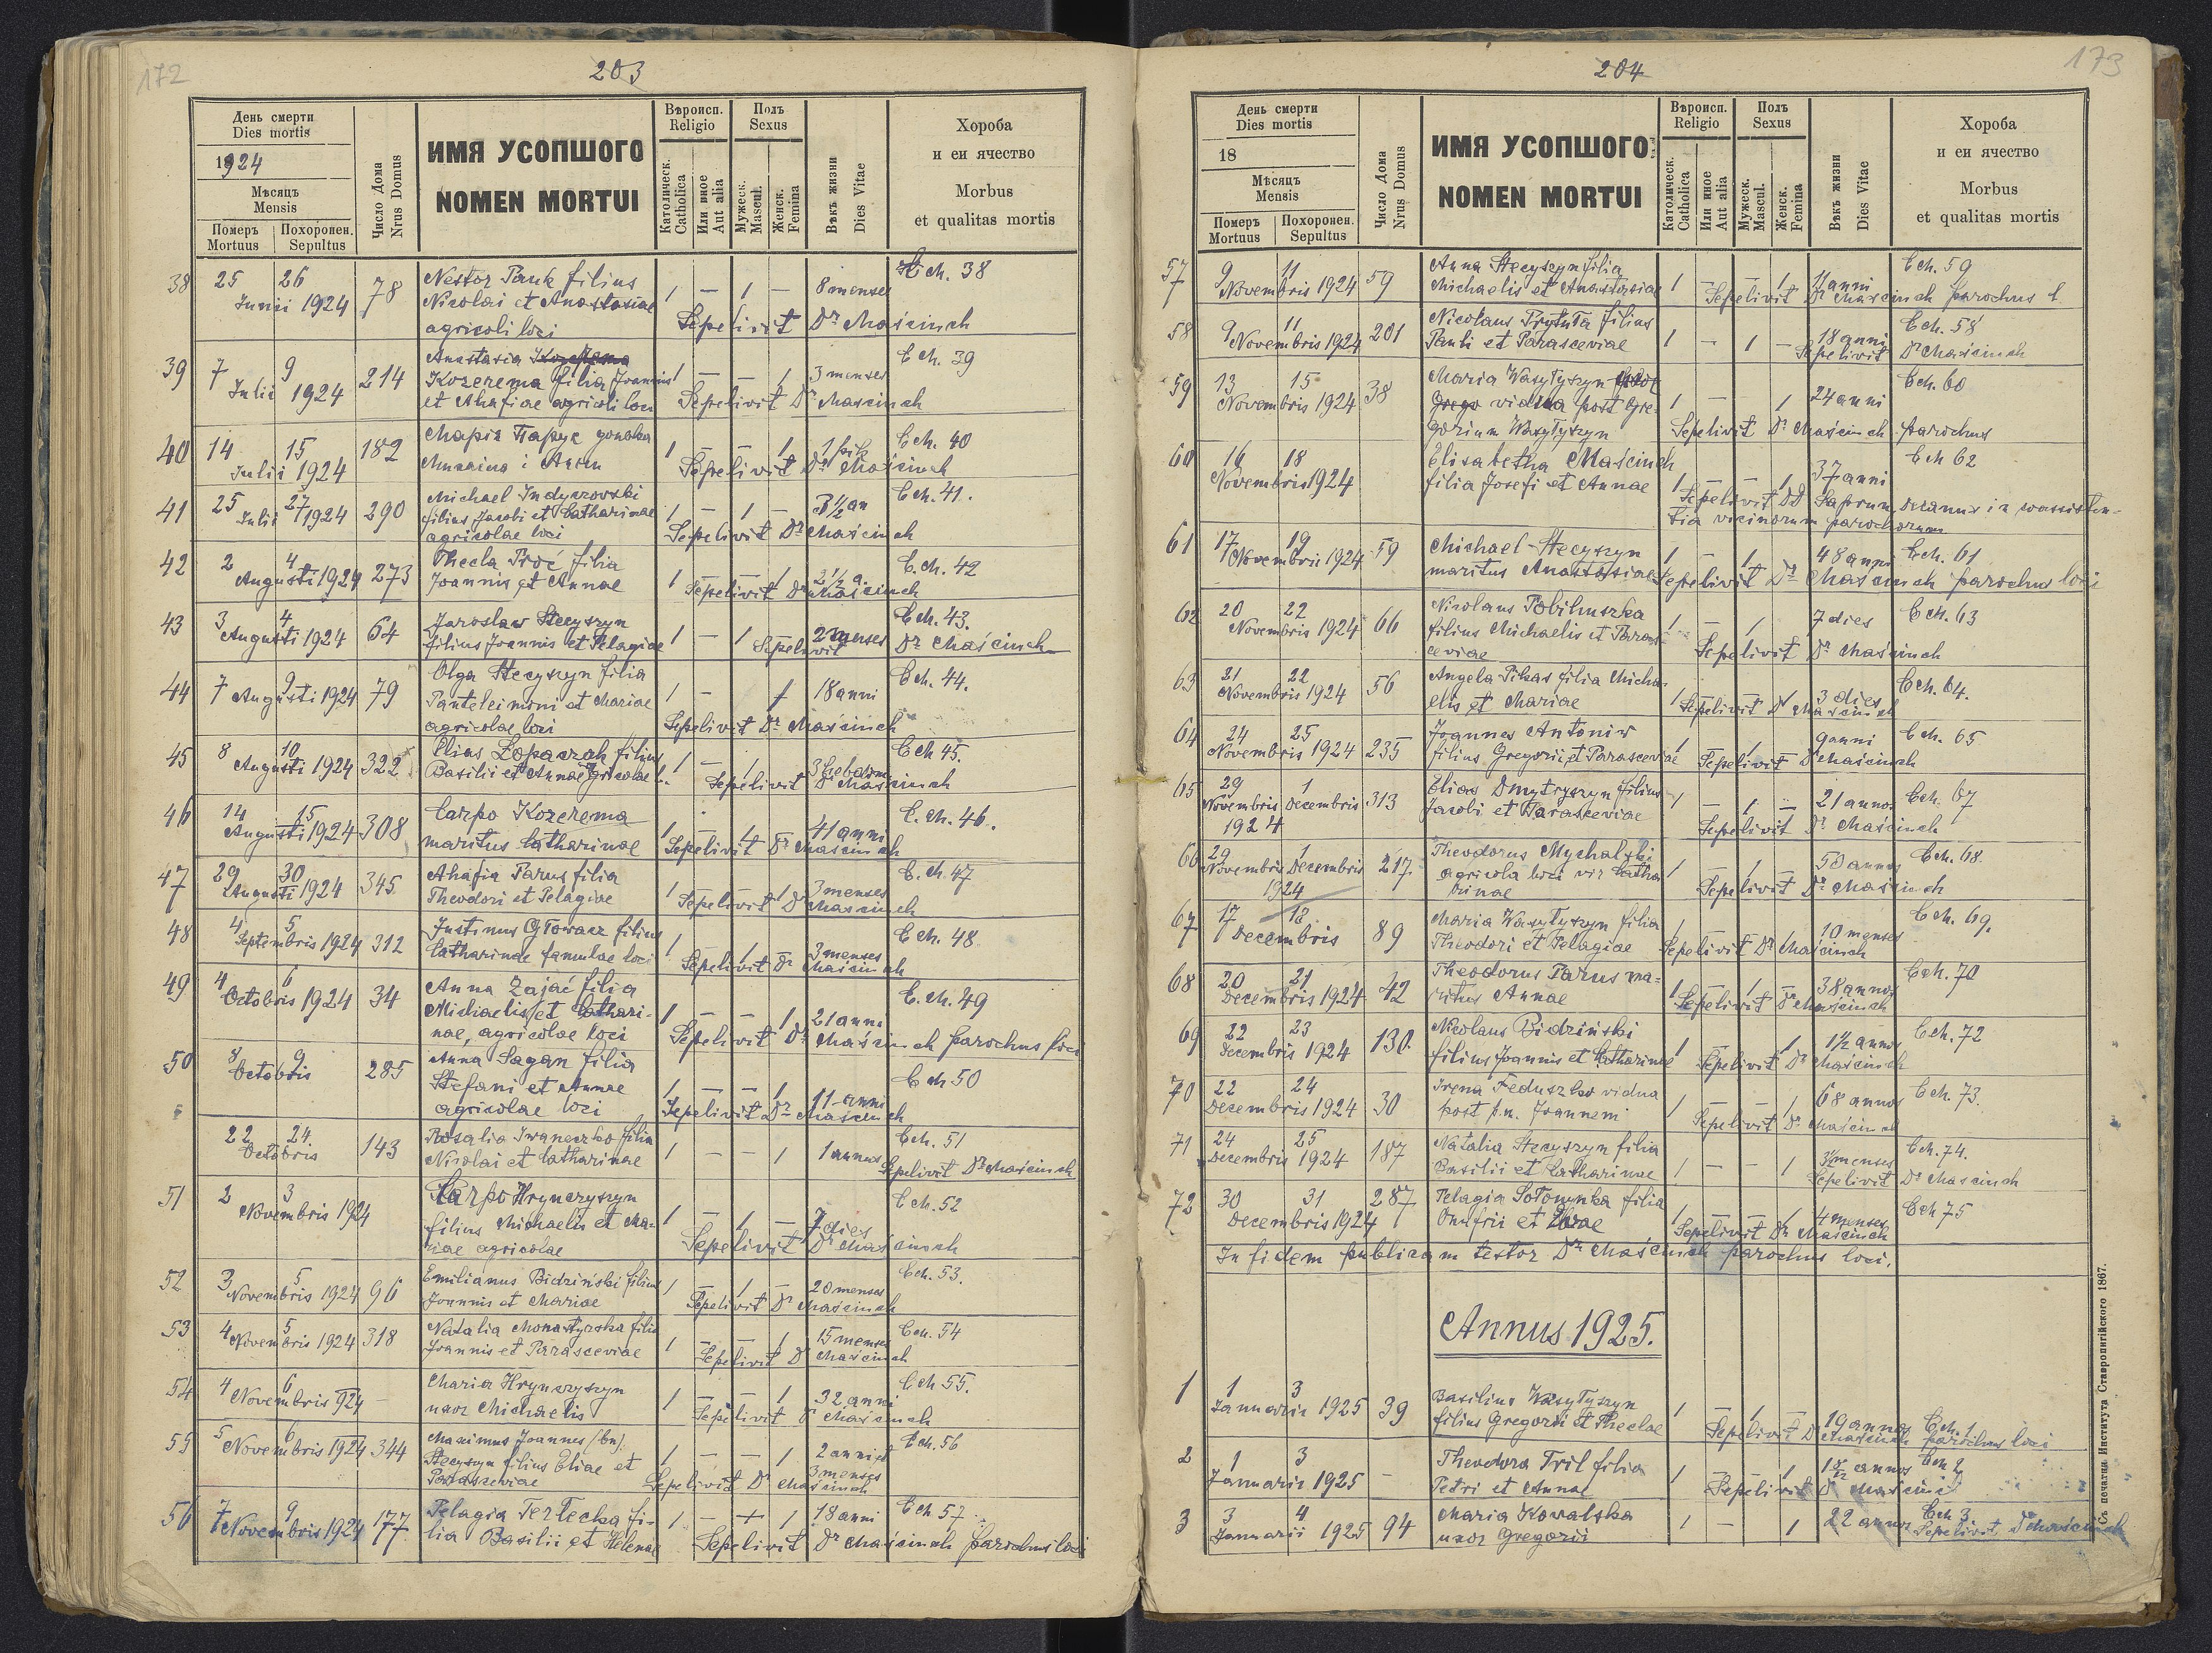 172
203
День смерти
Dies mortis
1924
Мѣсяцъ
Mensis
Померъ
Mortuus
Похоронен.
Sepultus
Число Дома
Nrus Domus
ИМЯ УСОПШОГО
NOMEN MORTUI
Вѣроисп.
Religio
Католическ.
Catholica
Или иное
Aut alia
Полъ
Sexus
Мужеск.
Mascul.
Женск.
Femina
Вѣкъ жизни
Dies Vitae
Хороба
и еи ячество
Morbus
et qualitas mortis
38 25 26 Junii 1924 78
Nestor Pauk filius 1 — 1 — 8 menses Ech. 38
Nicolai et Anastasiae
agricoli loci Sepelivit Dr Maścinch
39 7 9 Julii 1924 214
Anastasia
Kozerema filia Joannis 1 — — 1 3 menses Ech. 39
et Ahafiae agricoli loci Sepelivit Dr Maścinch
40 14 15 Julii 1924 182
Марія Парус 1 — — 1 1 рік Ech. 40
Sepelivit Dr Maścinch
41 25 27 Julii 1924 290
Michael Indyszowski
filius Jacobi et Catharinae 1 — 1 — 3 1/2 an Ech. 41.
agricolae loci Sepelivit Dr Maścinch
42 2 4 Augusti 1924 273
Thecla Proć filia
Joannis et Annae 1 — — 1 2 1/2 a. E.ch. 42
Sepelivit Dr Maścinch
43 3 4 Augusti 1924 64
Jaroslaw Stecyszyn
filius Joannis et Pelagiae 1 — 1 2 menses Ech. 43.
Sepelivit Dr Maścinch
44 7 9 Augusti 1924 79
Olga Stecyszyn filia
Panteleimoni et Mariae 1 — 1 18 anni Ech. 44.
agricolae loci Sepelivit Dr Maścinch
45 8 10 Augusti 1924 322
Elias Łopaczak filius
Basilii et Annae agricolae l. 1 — 1 3 hebdom. Ech 45.
Sepelivit Dr Maścinch
46 14 15 Augusti 1924 308
Carpo Kozerema
maritus Catharinae 1 — 1 — 41 anni E.ch. 46.
Sepelivit Dr Maścinch
47 29 30 Augusti 1924 345
Ahafia Parus filia
Theodori et Pelagiae 1 — — 1 3 menses E.ch. 47
Sepelivit Dr Maścinch
48 4 5 Septembris 1924 312
Justinus Głowacz filius
Catharinae famulae loci 1 — 1 — 3 menses Ech. 48.
Sepelivit Dr Maścinch
49 4 6 Octobris 1924 34
Anna Zająć filia
Michaelis et Cathari- 1 — — 1 21 anni E.ch. 49
nae, agricolae loci Sepelivit Dr Maścinch parochus loci
50 8 9 Octobris 285
Anna Sagan filia
Stefani et Annae 1 — — 1 11 anni Ech 50
agricolae loci Sepelivit Dr Maścinch
22 24. Octobris 143
Rosalia Iwaneczko filia
Nicolai et Catharinae 1 — — 1 1 annus Ech. 51
Sepelivit Dr Maścinch
51 2 3 Novembris 1924
Karpo Hrynczyszyn
filius Michaelis et Ma- 1 — 1 — 7 dies Ech. 52
riae agricolae Sepelivit Dr Maścinch
52 3 5 Novembris 1924 96
Emilianus Bidziński filius
Joannis et Mariae 1 — 1 — 20 menses Ech. 53.
Sepelivit Dr Maścinch
53 4 5 Novembris 1924 318
Natalia Monastyrska filia
Joannis et Parasceviae 1 — — 1 15 menses Ech. 54
Sepelivit Dr Maścinch
54 4 6 Novembris 924 —
Maria Hrynczyszyn
uxor Michaelis 1 — — 1 32 anni Ech 55.
Sepelivit Dr Maścinch
55 5 6 Novembris 1924 344
Maximus Joannes (bn)
Stecyszyn filius Eliae et 1 — — 1 2 anni et Ech. 56
Parasceviae 3 menses
Sepelivit Dr Maścinch
56 7 9 Novembris 1924 177
Pelagia Terlecka fi- 1 — + 1 18 anni Ech 57
lia Basilii et Helenae Sepelivit Dr Maścinch parochus loci
204
173
День смерти
Dies mortis
18
Мѣсяцъ
Mensis
Померъ
Mortuus
Похоронен.
Sepultus
Число Дома
Nrus Domus
ИМЯ УСОПШОГО
NOMEN MORTUI
Вѣроисп.
Religio
Католическ.
Catholica
Или иное
Aut alia
Полъ
Sexus
Мужеск.
Mascul.
Женск.
Femina
Вѣкъ жизни
Dies Vitae
Хороба
и еи ячество
Morbus
et qualitas mortis
57 9 11 Novembris 1924 59
Anna Stecyszyn filia
Michaelis et Anastasiae 1 — — 1 11 anni Ech. 59
Sepelivit Dr Maścinch parochus l.
58 9 11 Novembris 1924 201
Nicolaus Prytuła filius
Pauli et Parasceviae 1 — 1 — 18 anni Ech. 58
Sepelivit Dr Maścinch
59 13 15 Novembris 1924 38
Maria Wasyłyszyn
vidua post Gre- 1 — 1 24 anni Ech. 60
gorium Wasyłyszyn Sepelivit Dr Maścinch parochus
60 16 18 Novembris 1924
Elisabetha Maścinch
filia Josefi et Annae 1 — — 1 37 anni Ech 62
Sepelivit DD Saprun decanus in
tia vicinorum parochorum
61 17 19 Novembris 1924 59
Michael Stecyszyn
maritus Anastasiae 1 — 1 48 anni Ech. 61
Sepelivit Dr Maścinch parochus loci
62 20 22 Novembris 1924 66
Nicolaus Pobihuszka
filius Michaelis et Paras- 1 — 1 7 dies Ech. 63
ceviae Sepelivit Dr Maścinch
63 21 22 Novembris 1924 56
Angela Pikas filia Micha-
elis et Mariae 1 — — 1 3 dies Ech. 64.
Sepelivit Dr Maścinch
64 24 25 Novembris 1924 235
Joannes Antoniw
filius Gregorii et Parasceviae 1 1 9 anni Ech. 65
Sepelivit Dr Maścinch
65 29 Novembris 1 Decembris 1924 313
Elias Dmytryszyn filius
Jacobi et Parasceviae 1 — 1 — 21 annos Ech. 67
Sepelivit Dr Maścinch
66 29 Novembris 1 Decembris 1924 217.
Theodorus Mychalski
agricola loci vir Catha 1 — 1 — 50 annos Ech. 68.
rinae Sepelivit Dr Maścinch
67 17 18 Decembris 89
Maria Wasyłyszyn filia
Theodori et Pelagiae 1 — 10 menses Ech. 69.
Sepelivit Dr Maścinch
68 20 21 Decembris 1924 42
Theodorus Parus ma-
ritus Annae 1 — 1 — 38 annos Ech. 70
Sepelivit Dr Maścinch
69 22 23 Decembris 1924 130.
Nicolaus Bidziński
filius Joannis et Catharinae 1 — — 1 1 1/2 annos Ech. 72
Sepelivit Dr Maścinch
70 22 24 Decembris 1924 30
Irena Feduszko vidua
post p.n. Joannem 1 — — 1 68 annos Ech. 73.
Sepelivit Dr Maścinch
71 24 25 Decembris 1924 187
Natalia Stecyszyn filia
Basilii et Catharinae 1 — — 1 menses Ech. 74.
Sepelivit Dr Maścinch
72 30 31 Decembris 1924 287
Pelagia Sołomyka filia
Onufrii et 1 — — 1 4 menses Ech 75
Sepelivit Dr Maścinch
In fidem publicam testor Dr Maścinch parochus loci.
Annus 1925.
1 1 3 Januarii 1925 39
Basilius Wasyłyszyn
filius Gregorii et Theclae 1 — 1 — 19 annos Ech. 1
Sepelivit Dr Maścinch parochus loci
2 1 3 Januarii 1925 —
Theodora Tril filia
Petri et Annae 1 — — 1 1 1/2 annos Ech 2
Sepelivit Dr Maścinch
3 3 4 Januarii 1925 94
Maria Kowalska
uxor Gregorii 1 — 1 22 annos Ech 3
Sepelivit Dr Maścinch
Съ печатни Института Ставропигійского 1867.